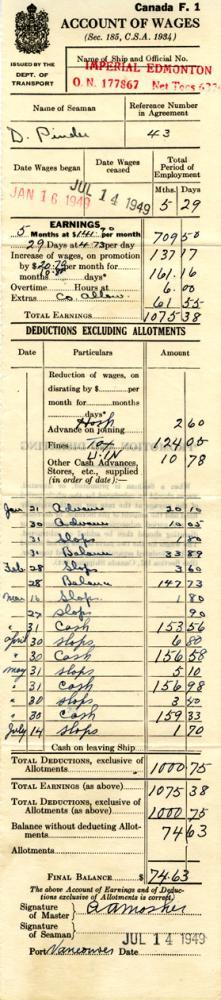 Canada F. 1
ACCOUNT OF WAGES
(Sec. 185, C.S.A. 1934)
ISSUED BY THE
DEPT. OF
TRANSPORT
Name of Ship and Official No.
IMPERIAL EDMONTON
O. N. 177867 Net Tons
Name of Seaman
Reference Number
in Agreement
D. 43
Date Wages began
Date Wages
ceased
Total
Period of
Employment
JAN 16 1949
JUL 14 1949
Mths. Days
5 29
EARNINGS
5 Months at $ per month 709 50
29 Days at 4.73 per day 137 17
Increase of wages, on promotion
by $ per month for
months days* 161.16
Overtime Hours at 6.00
Extras Co. Allow. 61 55
TOTAL EARNINGS 1075 38
DEDUCTIONS EXCLUDING ALLOTMENTS
Date Particulars Amount
Reduction of wages, on
disrating by $ per
month for months
days*
Hosp 2 60
Advance on joining
Fines Tax 124 05
U.I.N 10 78
Other Cash Advances,
Stores, etc., supplied
(in order of date):—
Jan 21 Advance 20 10
30 Advance 10 05
31 Slops 1 80
31 Balance 33 89
Feb 28 Slops 3 60
28 Balance 147 73
Mar 16 Slops 1 80
27 Slops 90
" 31 Cash 153 56
April 30 slops 6 80
" 30 Cash 156 58
May 31 slops 5 10
" 31 cash 156 98
" 30 slops 3 40
" 30 cash 159 33
July 14 slops 1 70
Cash on leaving Ship
TOTAL DEDUCTIONS, exclusive of
Allotments 1000 75
TOTAL EARNINGS (as above) 1075 38
TOTAL DEDUCTIONS, exclusive of
Allotments (as above) 1000 75
Balance without deducting Allot-
ments 74 63
Allotments
FINAL BALANCE $ 74.63
The above Account of Earnings and of Deduc-
tions exclusive of Allotments is correct.
Signature
of Master
Signature
of Seaman
JUL 14 1949
Port Vancouver Date